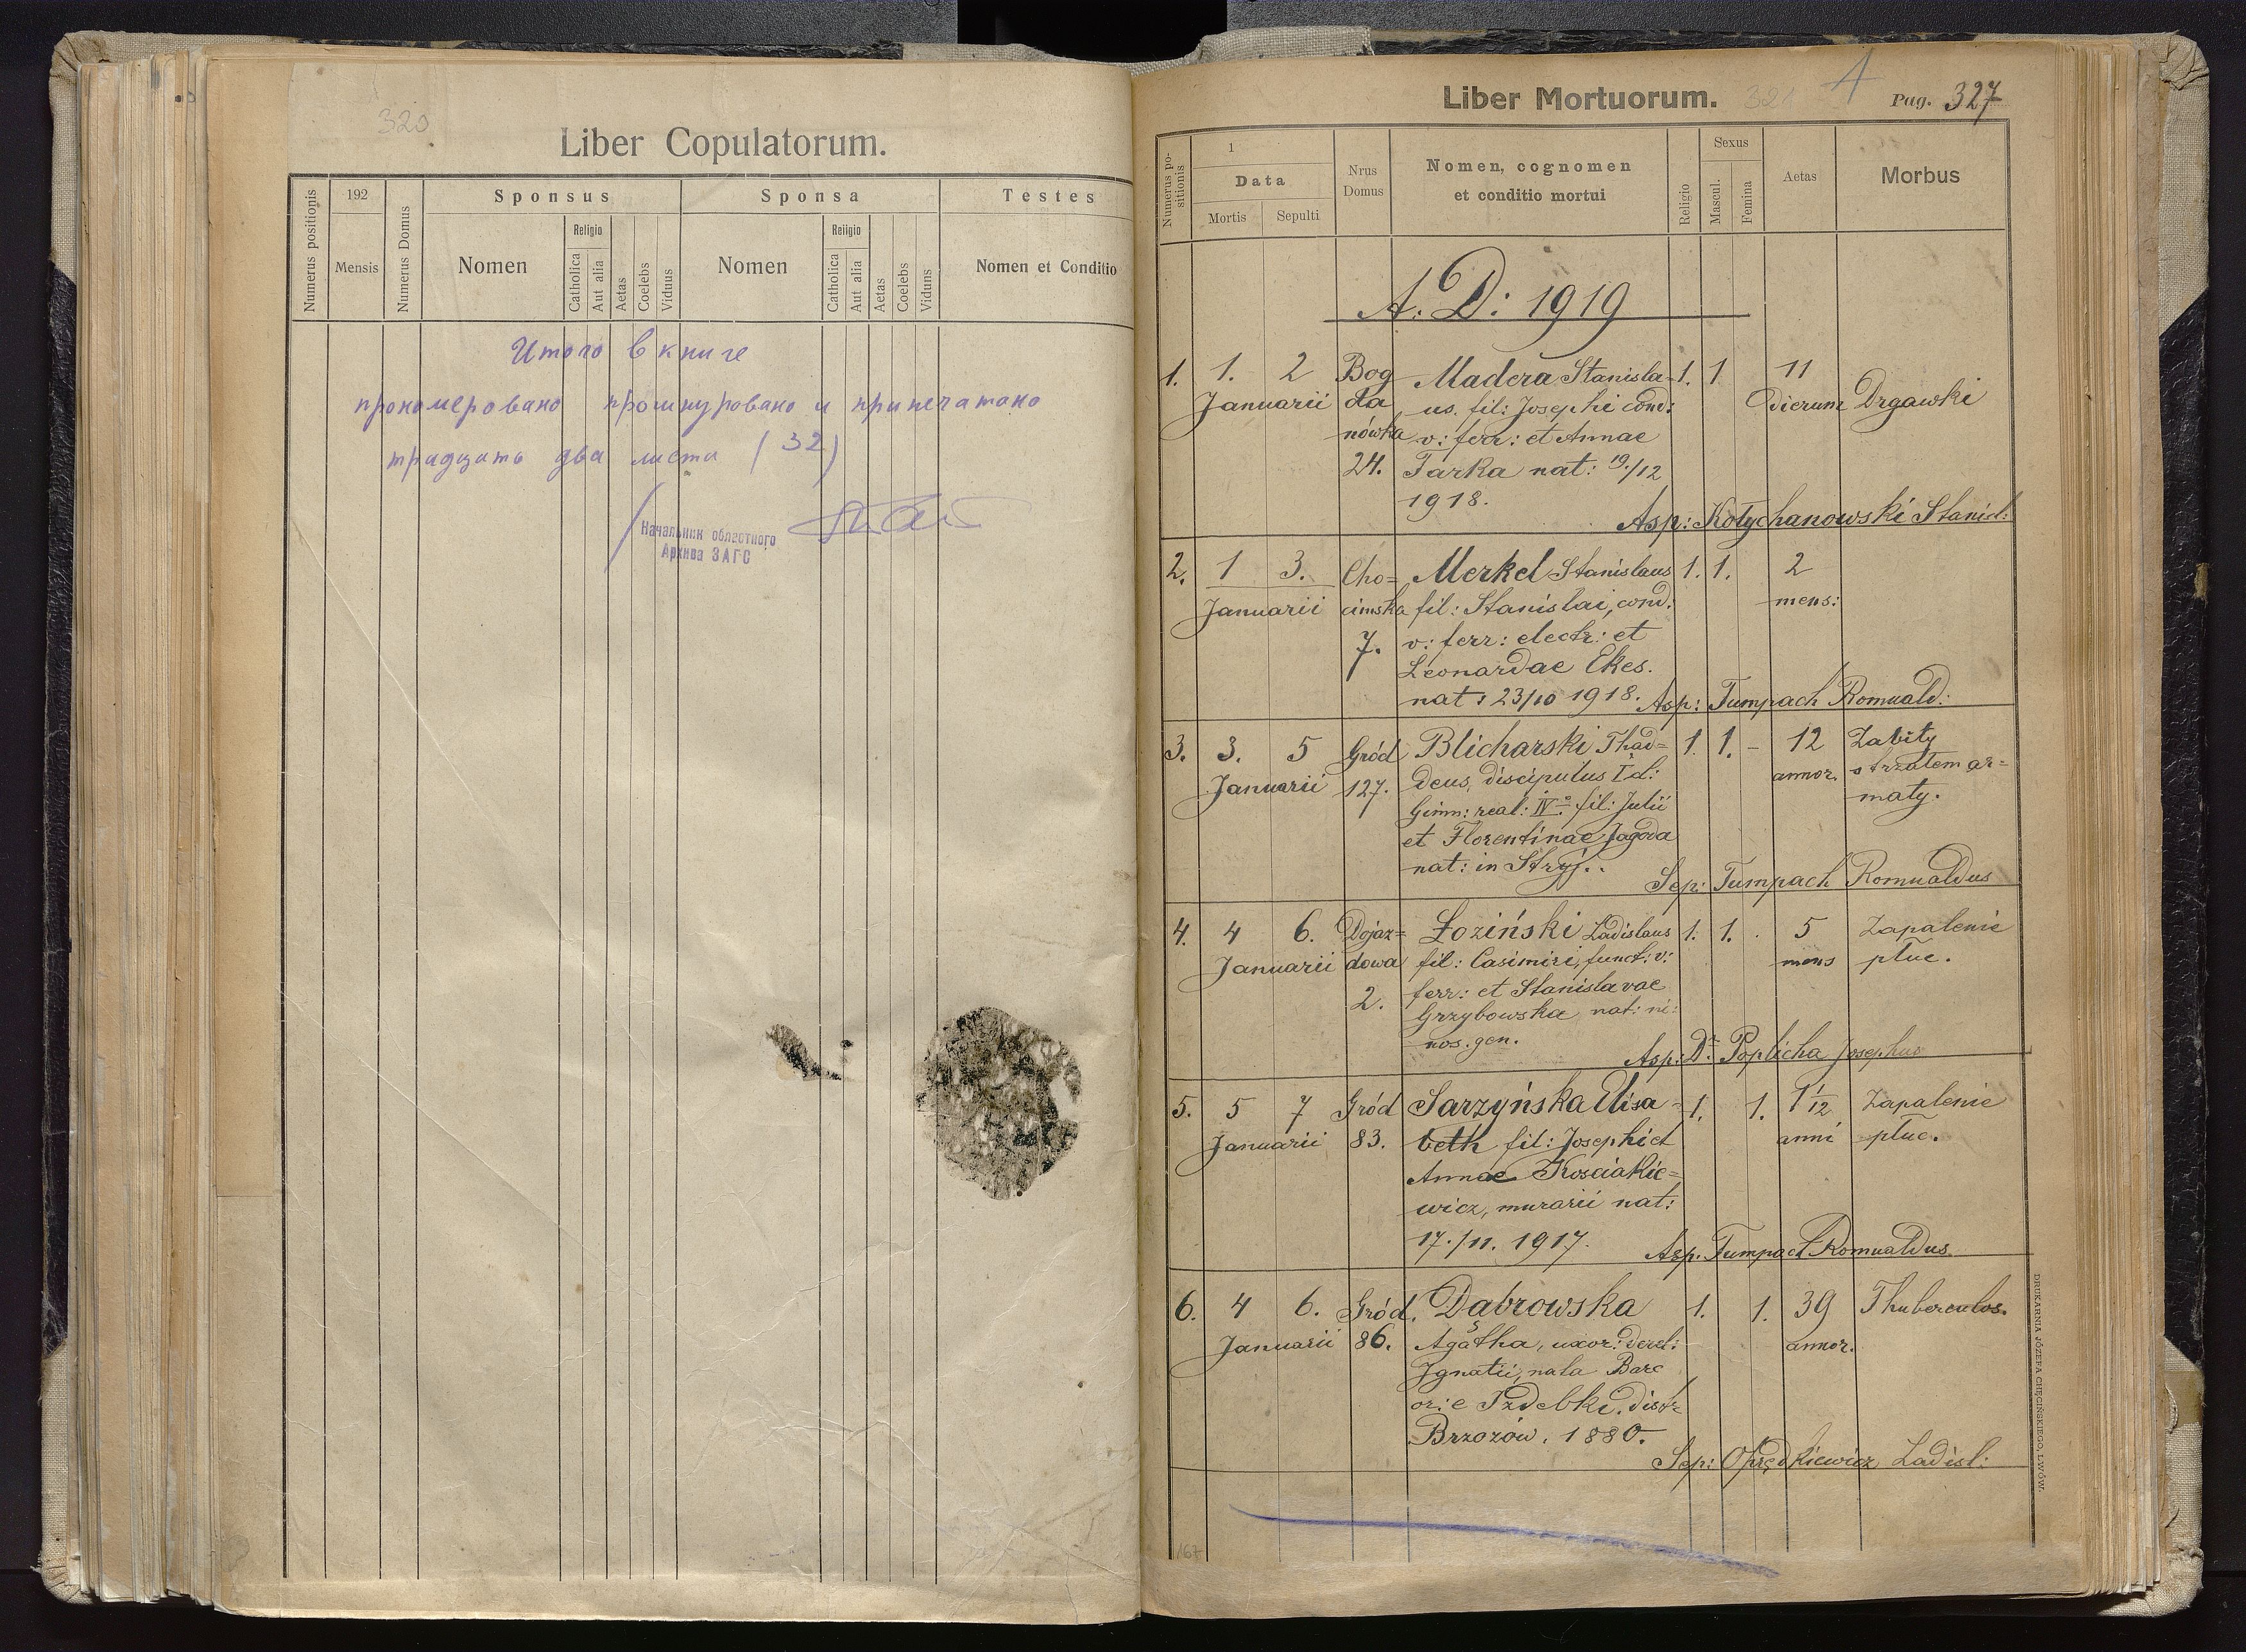 320
Liber Copulatorum.
Numerus positionis
192
Mensis
Numerus Domus
Sponsus
Nomen
Religio
Catholica
Aut alia
Aetas
Coelebs
Viduus
Sponsa
Nomen
Religio
Catholica
Aut alia
Aetas
Coelebs
Viduus
Testes
Nomen et Conditio
Итого в книге
прономеровано прошнуровано и припечатано
тридцать два листа (32)
Начальник областного
Архива ЗАГС
Liber Mortuorum.
Pag. 327
Numerus po-
sitionis
1
Data
Mortis
Sepulti
Nrus
Domus
Nomen, cognomen
et conditio mortui
Religio
Sexus
Mascul.
Femina
Aetas
Morbus
A. D: 1919
1. 1. 2 Bog Madera Stanisla= 1. 1 11
Januarii da us. fil: Josephi cond: dierum Drgawki
nówka v: ferr: et Annae
24. Tarka nat: 19./12
1918.
Asp: Kołychanowski Stanisl:
2. 1 3. Cho= Merkel Stanislaus 1. 1. 2
Januarii cimska fil: Stanislai, cond: mens:
7. v: ferr: electr: et
Leonardae Ekes.
nat: 23/10 1918. Asp: Tumpach Romuald:
3. 3. 5 Gród Blicharski Thad= 1. 1. - 12 Zabity
Januarii 127. deus, discipulus I cl: annor. strzałem ar=
Gimn: real: IV° fil: Julii maty.
et Florentinae Jagoda
nat: in Stryj..
Sep: Tumpach Romualdus
4. 4 6. Dojaz= Łoziński Ladislaus 1. 1. . 5 Zapalenie
Januarii dowa fil: Casimiri, funct: v: mens płuc.
2. ferr: et Stanislavae
Grzybowska nat:
nos. gen.
Asp: Dr Poplicha Josephus
5. 5 7 Gród Sarzyńska Elisa= 1. 1. 1 1/12 Zapalenie
Januarii 83. beth fil: Josephi et anni płuc.
Annae Kościakie=
wicz, murarii nat:
17./11. 1917. Asp. Tumpach Romualdus
6. 4 6. Gród. Dąbrowska 1. 1. 39 Thuberculos.
Januarii 86. Agatha, uxor: derel: annor.
Ignatii, nata Barc
or: e Izdebki. distr
Brzozów. 1880.
Sep: Oprędkiewicz Ladisl:
167
DRUKARNIA JÓZEFA CHĘCIŃSKIEGO, LWÓW.